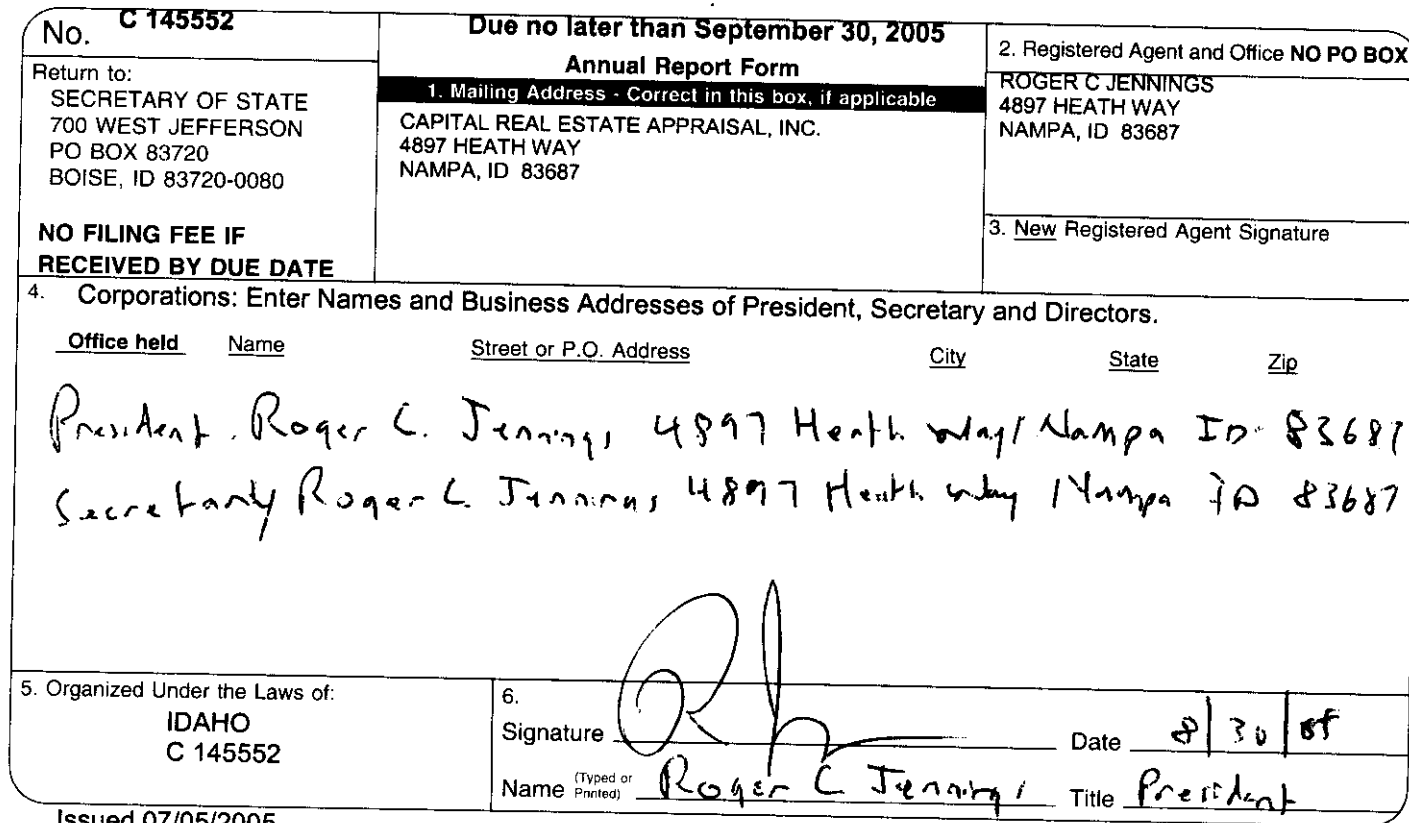 No. C 145552
Return to:
SECRETARY OF STATE
700 WEST JEFFERSON
PO BOX 83720
BOISE, ID 83720-0080
NO FILING FEE IF
RECEIVED BY DUE DATE
Due no later than September 30, 2005
Annual Report Form
1. Mailing Address - Correct in this box, if applicable
CAPITAL REAL ESTATE APPRAISAL, INC.
4897 HEATH WAY
NAMPA, ID 83687
2. Registered Agent and Office NO PO BOX
ROGER C JENNINGS
4897 HEATH WAY
NAMPA, ID 83687
3. New Registered Agent Signature
4. Corporations: Enter Names and Business Addresses of President, Secretary and Directors.
Office held Name Street or P.O. Address City State Zip
President Roger C. Jennings 4897 Heath Way Nampa ID 83687
Secretary Roger C. Jennings 4897 Heath Way Nampa ID 83687
5. Organized Under the Laws of:
IDAHO
C 145552
6.
Signature Date 8/30/05
Name (Typed or Printed) Roger C Jennings Title President
Issued 07/05/2005